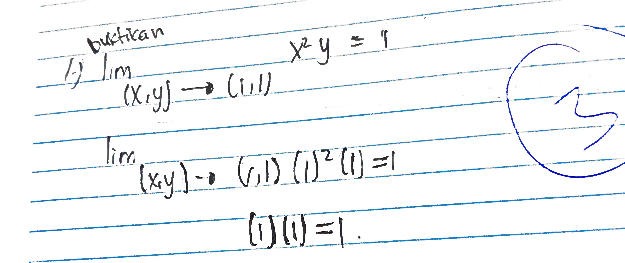 buktikan
1.) lim x² y = 1
(x,y) → (1,1)
lim
(x,y) → (1,1) (1)² (1) = 1
(1) (1) = 1.
3